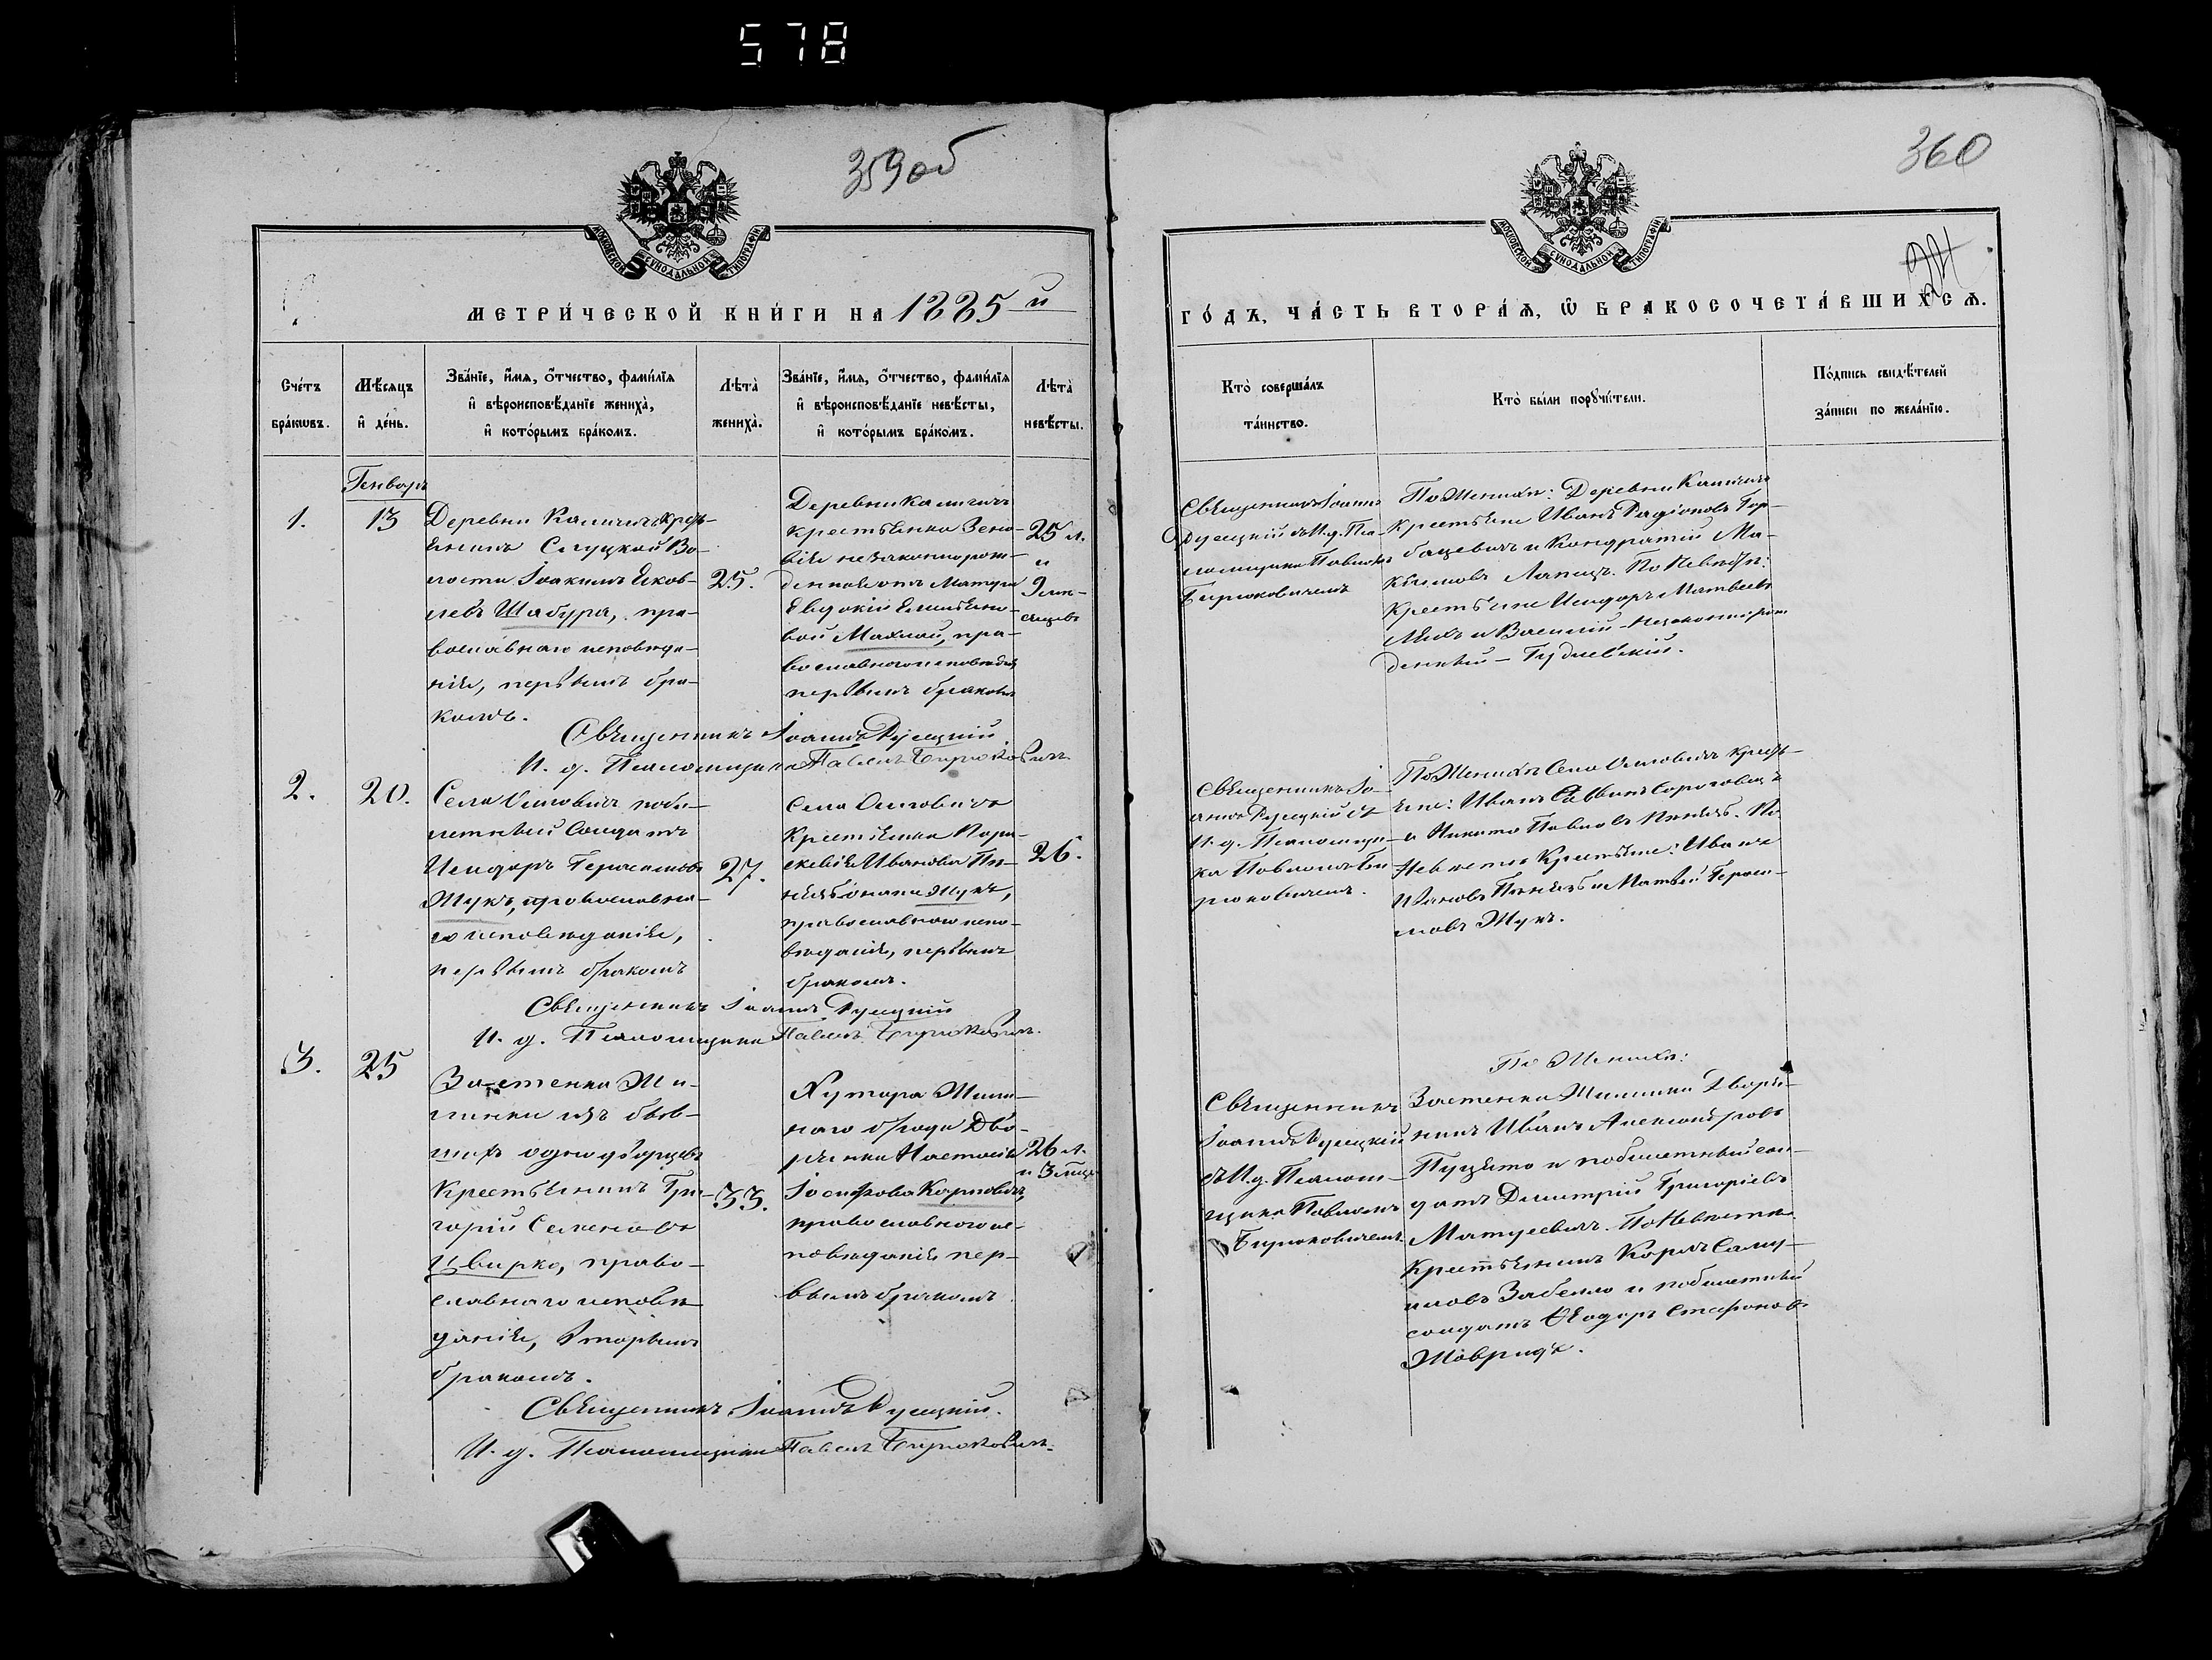 578
359 об
МОСКОВСКОЙ СѴНОДАЛЬНОЙ ТИПОГРАФІИ
МЕТРИ́ЧЕСКОЙ КНИ́ГИ НА 1885 й
Сче́тъ бра́кѡвъ.
Мѣ́сяцъ и҆ де́нь.
Зва́нїе, и҆́мѧ, ѻ҆́тчество, фами́лїѧ
и҆ вѣроисповѣ́данїе жениха̀,
и҆ кото́рымъ бра́комъ.
Лѣта̀ жениха̀.
Зва́нїе, и҆́мѧ, ѻ҆́тчество, фами́лїѧ
и҆ вѣроисповѣ́данїе невѣ́сты,
и҆ кото́рымъ бра́комъ.
Лѣта̀ невѣ́сты.
Генварь
1.
13
Деревни Калиничъ крес-
янинъ Слуцкой Во-
лости Іоакимъ Яков-
левъ Шабура, пра-
вославнаго исповѣда-
нія, первымъ бра-
комъ.
25.
Деревни
крестьянка Зено-
вія незаконнорож-
денная отъ матери
Евдокіи Емельяно-
вой Махной, пра-
вославного исповѣданія
первымъ бракомъ
25 л.
и
9 мѣ-
сяцевъ
Священникъ Іоаннъ Русецкій
И. д. Псаломщика Павелъ Бирюковичъ
2.
20.
Села Омговичъ поби-
летный Солдатъ
Исидоръ Герасимовъ
Жукъ, православна-
го исповѣданія,
первымъ бракомъ
27.
Села Омговичъ
Крестьянка Пара-
скевія Иванова
православного испо-
вѣданія, первымъ
бракомъ.
26.
Священникъ Іоаннъ Русецкій
И. д. Псаломщика Павелъ Бирюковичъ.
3.
25
Застенка Жи-
линки изъ быв-
шихъ однодворцевъ
Крестьянинъ Гри-
горій Семеновъ
Цвирко, право-
славнаго исповѣ
данія, вторымъ
бракомъ.
33.
Хутора Жили-
наго брода Дво-
рянка Настасія
Іосифова Карповичъ,
православного ис-
повѣданія пер-
вымъ бракомъ
26 л.
и 3 мѣс.
Священникъ Іоаннъ Русецкій.
И. д. Псаломщика Павелъ Бирюковичъ.
360
МОСКОВСКОЙ СѴНОДАЛЬНОЙ ТИПОГРАФІИ
ГО́ДЪ, ЧА́СТЬ ВТОРА́Ѧ, Ѽ БРАКОСОЧЕТА́ВШИХСѦ.
Кто̀ соверша́лъ та́инство.
Кто̀ бы́ли порꙋчи́тели.
По́дпись свидѣ́телей за́писи по жела́нїю.
Священникъ Іоаннъ
Русецкій съ И. д. Пса-
ломщика Павломъ
Бирюковичемъ
По Женихѣ: Деревни
Крестьяне Иванъ Радіоновъ Гор-
бацевичъ и Кондратій Ма-
кымовъ Лапецъ. По Невѣстѣ:
Крестьяне Исидоръ Матвеевъ
и Василій - незаконнорож
денный - Гудлевскій.
Священникъ Іо-
аннъ Русецкій съ
И. д. Псаломщи-
ка Павломъ Би-
рюковичемъ.
По Женихѣ Села Омговичъ крес-
яне: Иванъ Саввинъ
и Никита Павловъ По
Невѣсте Крестьяне: Иванъ
Ивановъ и Матвей Гераси-
мовъ Жукъ.
Священникъ
Іоаннъ Русецкій
съ И. д. Псалом-
щика Павломъ
Бирюковичемъ.
По Женихѣ:
Застенка Жилинки Дворя-
нинъ Иванъ Александровъ
Пуцято и побилетный сол-
датъ Димитрій Григоріевъ
Матусевичъ. По Невѣсте
Крестьянинъ Карлъ Саму-
иловъ Забелло и побилетный
солдатъ Ѳеодоръ Стефановъ
Жавридъ.